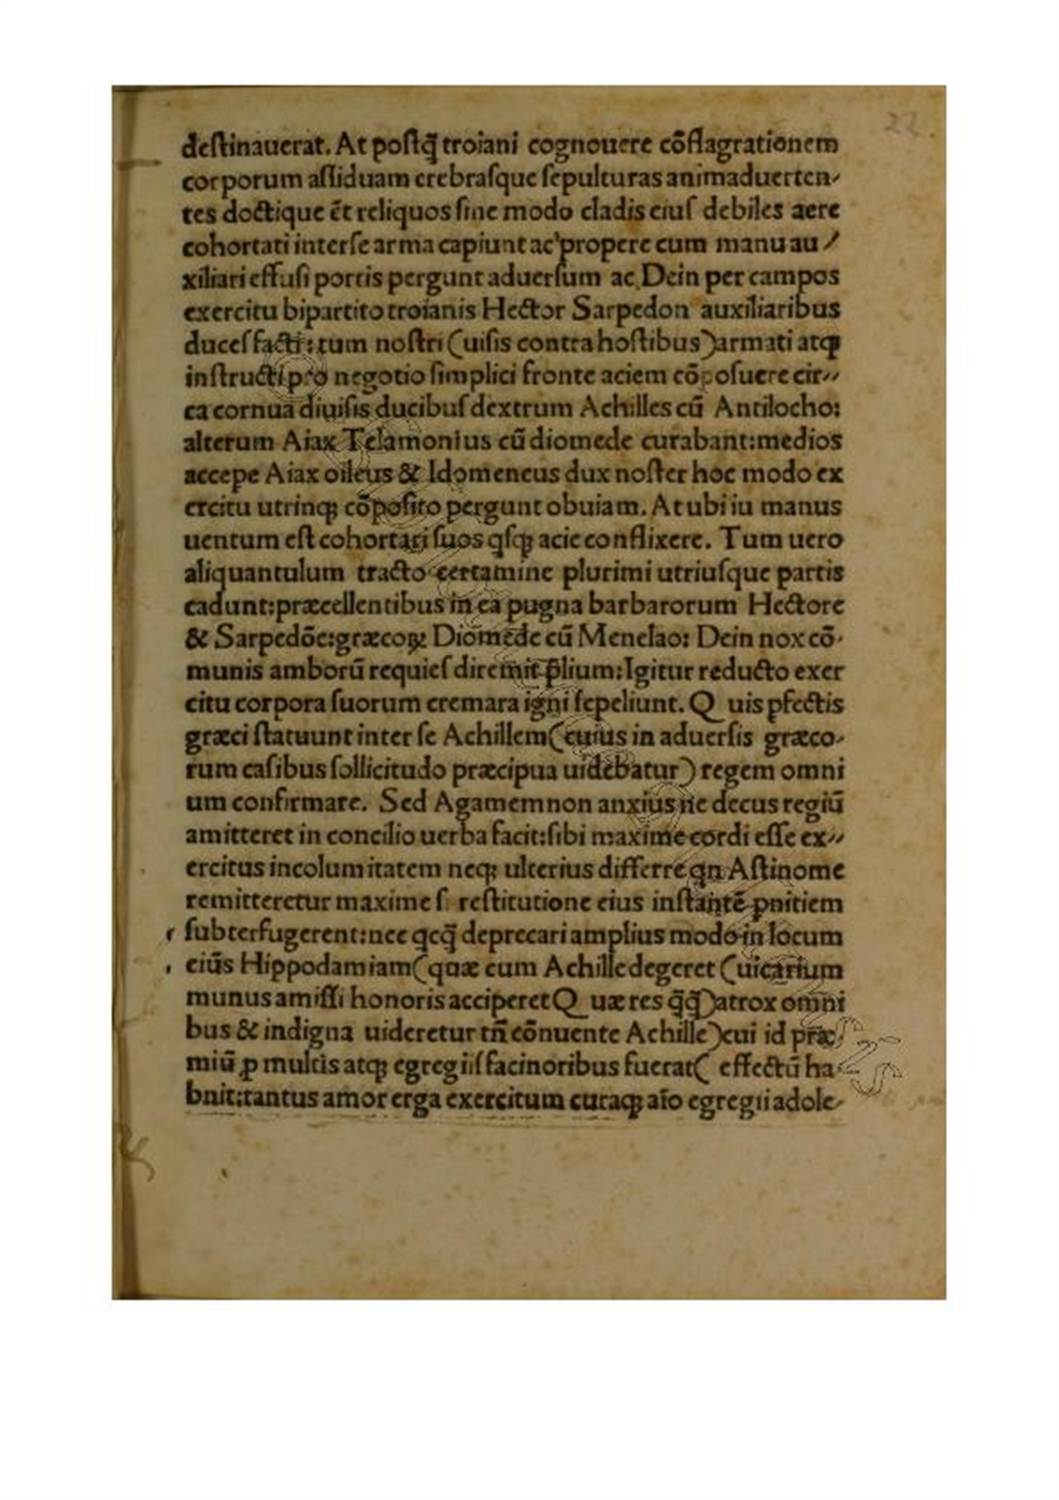 22
deſtinauerat. At poſtq̄ troiani cognouere cōflagrationem
corporum aſſiduam crebraſque ſepulturas animaduerten-
tes doctique ēt reliquos ſine modo cladis eiuſ debiles aere
cohortati interſe arma capiunt ac propere cum manu au/
xiliari effuſi portis pergunt aduerſum ac Dein per campos
exercitu bipartito troianis Hector Sarpedon auxiliaribus
duceſ facti: tum noſtri (uiſis contra hoſtibus) armati atqꝫ
inſtructi pro negotio ſimplici fronte aciem cōpoſuere cir-
ca cornua diuiſis ducibuſ dextrum Achilles cū Antilocho:
alterum Aiax Telamonius cū diomede curabant: medios
accepe Aiax oileus & Idomeneus dux noſter hoc modo ex
ercitu utrinqꝫ cōpoſito pergunt obuiam. At ubi iu manus
uentum eſt cohortati ſuos qſqꝫ acie conflixere. Tum uero
aliquantulum tracto certamine plurimi utriuſque partis
cadunt: præcellentibus in ea pugna barbarorum Hectore
& Sarpedōe: græcoꝝ Diomede cū Menelao: Dein nox cō-
munis amborū requieſ diremit p̄lium: Igitur reducto exer
citu corpora ſuorum cremara igni ſepeliunt. Q uis pfectis
græci ſtatuunt inter ſe Achillem (cuius in aduerſis græco-
rum caſibus ſollicitudo præcipua uidebatur) regem omni
um confirmare. Sed Agamemnon anxius ne decus regiū
amitteret in concilio uerba facit: ſibi maxime cordi eſſe ex-
ercitus incolumitatem neqꝫ ulterius differre qn Aſtinome
remitteretur maxime ſ reſtitutione eius inſtantē pnitiem
ſubterfugerent: nec qcq̄ deprecari amplius modo in locum
eiūs Hippodamiam (quæ cum Achille degeret (uicarium
munus amiſſi honoris acciperet Q uæ res q̄q̄) atrox omni
bus & indigna uideretur tn̄ cōnuente Achille) cui id præ
miū ꝓ multis atqꝫ egregiiſ facinoribus fuerat ( effectū ha-
bnit: tantus amor erga exercitum curaqꝫ aīo egregii adole-